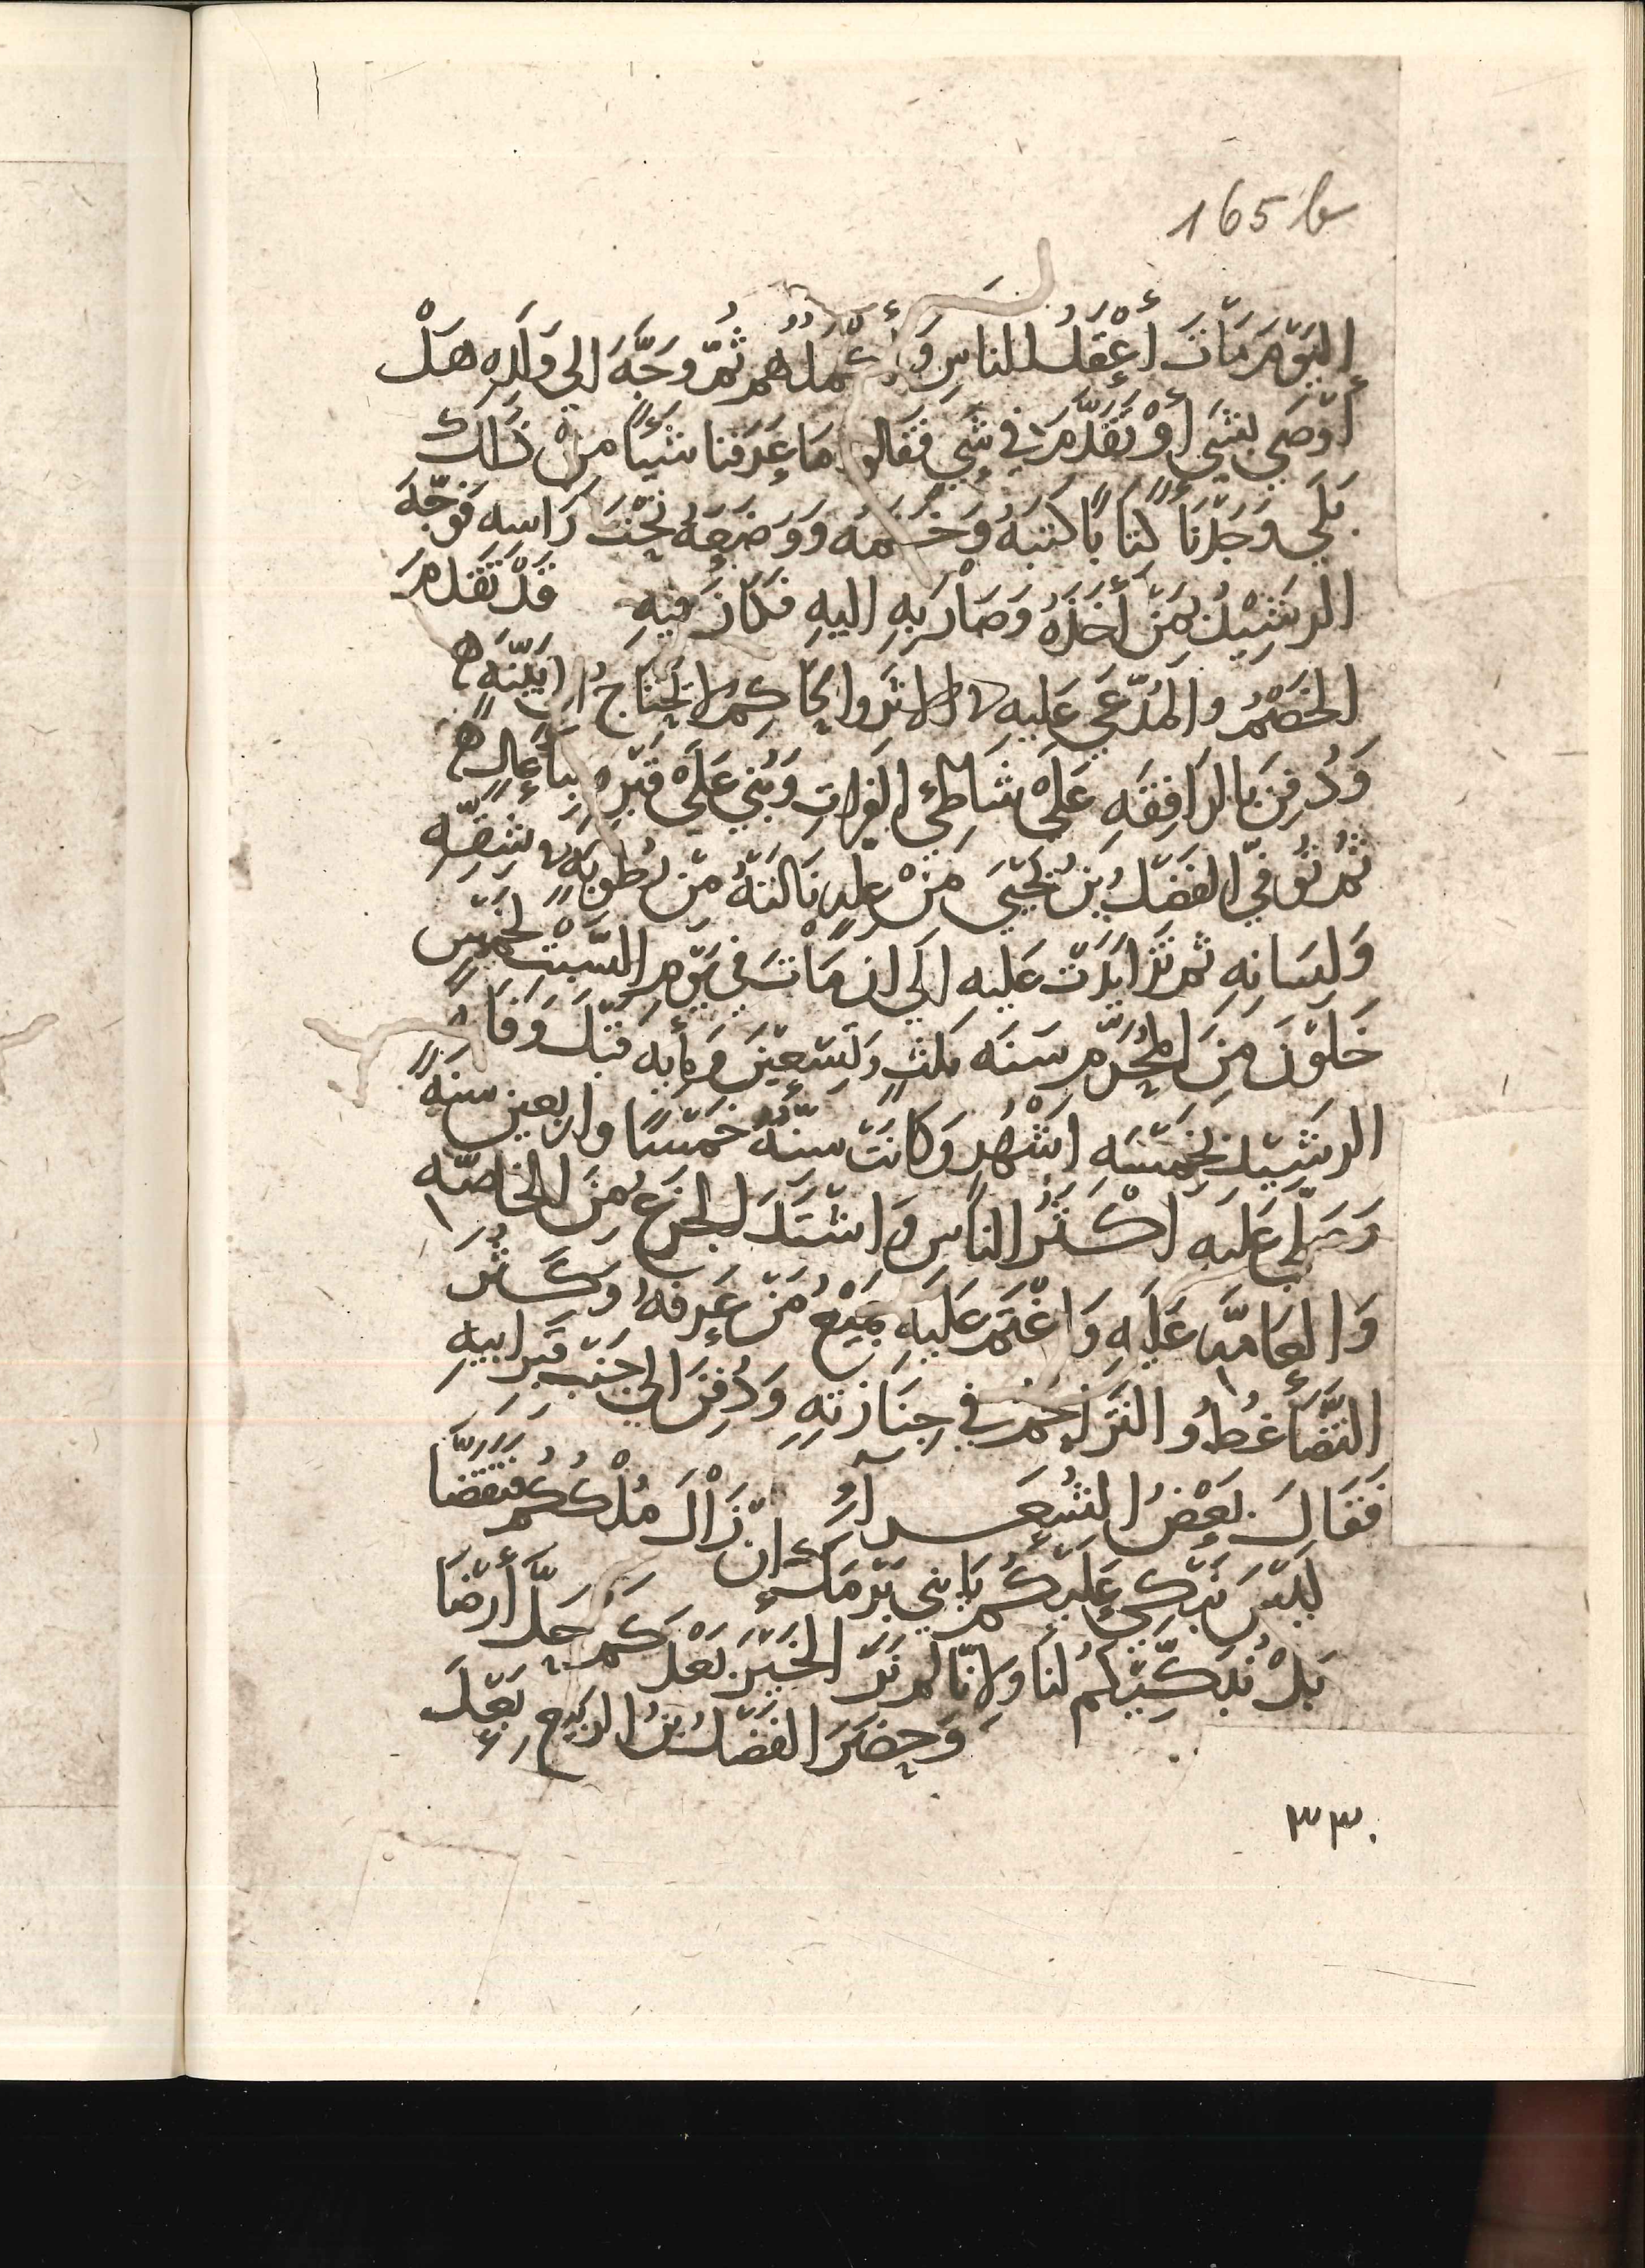 165 b
اليَوْمَ مَاتَ أَعْقَلُ الناسِ وَأَكْمَلُهُم ثُمَّ وَجَّهَ الى وَلَدِهِ هَلْ
أَوْصَى بِشَيْءٍ أَوْ تَقَدَّمَ في شَيْءٍ فَقَالوا مَا عَرَفنا شَيْئًا مِنْ ذَلِكَ
بَلَى وَجَدْنَا كِتَابًا كَتَبَهُ وَخَتَمَهُ وَوَضَعَهُ تَحْتَ رَاسِهِ فَوَجَّهَ
الرَشِيْدُ بِمَنْ أَخَذَهُ وَصَارَ بِهِ اليهِ فَكَانَ فِيهِ قَدْ تَقَدمَ
الخَصْمُ والمُدَّعَى عَليهِ بالاثر والحَاكِمُ لا يَحْتَاجُ الى بَيِّنَةٍ
وَدُفِنَ بِالرَافِقَهِ عَلَىْ شَاطِئِ الفُراتِ وَبُنِيَ عَلَىْ قَبْرِهِ بِنَاءٌ عَالٍ
ثُمَّ تُوُفِّيَ الفَضْلُ بْنُ يَحْيَى مِنْ عِلةٍ نَالَتْهُ مِنْ رُطُوبَةٍ في شِقِّهِ
وَلِسَانِهِ ثم تَزَايَدَتْ عَليهِ الى ان مَاْتَ في يَوْمِ السَبْتِ لِخَمْسٍ
خَلَوْنَ مِنَ المُحَرَّمِ سَنَه ثلثٍ وَتِسْعِيْنَ وَمِايه قَبْلَ وَفَاةِ
الرشِيْدِ بِخَمْسَهِ اشْهُرٍ وَكَانَتْ سِنُّهُ خَمْسًا واربعين سنهً
وَصَلَّى عَلَيهِ اكْثَرُ الناسِ وَاشْتَدَ الجَزَعُ مِنَ الخاصّه
وَالعَامَّه عَلَيهِ وَاغْتَمَّ عَلَيهِ جَمِيْعُ مَنْ عَرَفَهُ وَكَثُرَ
التَّضَاغُطُ والتَزَاحُمُ في جِنَازَتِهِ وَدُفِنَ الى جَنْبِ قَبْرِ ابيهِ
فَقَالَ بَعْضُ الشُعَرَآءِ
لَيْسَ نَبْكِي عَلَيْكُم يَا بني بَرْمَك ان زَاْلَ مُلْكُكُم فَتَقَضَّا
بَلْ نُبَكِّيْكُم لَنَا وَلانّا لم نَرَ الخَيْرَ بَعْدَكُم حَلَّ أَرْضَا
وَحَضَرَ الفَضْلُ بنُ الرَبِيْعِ بَعْدَ
٣٣٠